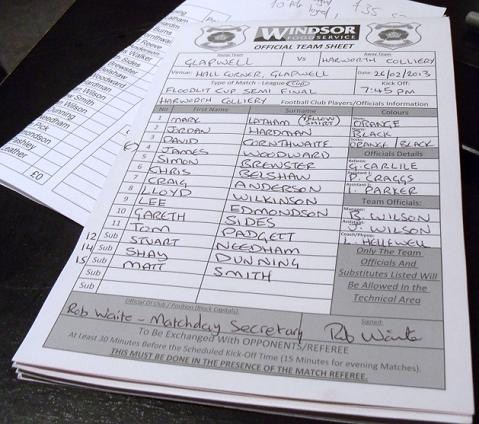 WINDSOR
FOODSERVICE
OFFICIAL TEAM SHEET
Home Team Away Team
GLAPWELL VS HARWORTH COLLIERY
Venue: HALL CORNER, GLAPWELL Date: 26/02/2013
Type of Match - League / Cup Kick Off:
FLOODLIT CUP SEMI FINAL 7:45 PM
HARWORTH COLLIERY Football Club Players/Officials Information
No First Name Surname Colours
1 MARK LATHAM (YELLOW SHIRT) ORANGE
2 JORDAN HARDMAN BLACK
3 DAVID CORNTHWAITE ORANGE/BLACK
4 JAMES WOODWARD Officials Details
5 SIMON BREWSTER Referee: G. CARLILE
6 CHRIS BELSHAW P. CRAGGS
7 CRAIG ANDERSON I. PARKER
8 LLOYD WILKINSON Team Officials:
9 LEE EDMONDSON B. WILSON
10 GARETH SIDES J. WILSON
11 TOM PADGETT Coach/Physio: L. HELLEWELL
12 Sub STUART NEEDHAM Only The Team
14 Sub SHAY DUNNING Officials And
15 Sub MATT SMITH Substitutes Listed Will
Sub Be Allowed In the
Sub Technical Area
Official Of Club / Position (Block Capitals): Signed:
ROB WAITE - MATCHDAY SECRETARY Rob Waite
To Be Exchanged With OPPONENTS/REFEREE
At Least 30 Minutes Before the Scheduled Kick-Off Time (15 Minutes for evening Matches).
THIS MUST BE DONE IN THE PRESENCE OF THE MATCH REFEREE.
£0